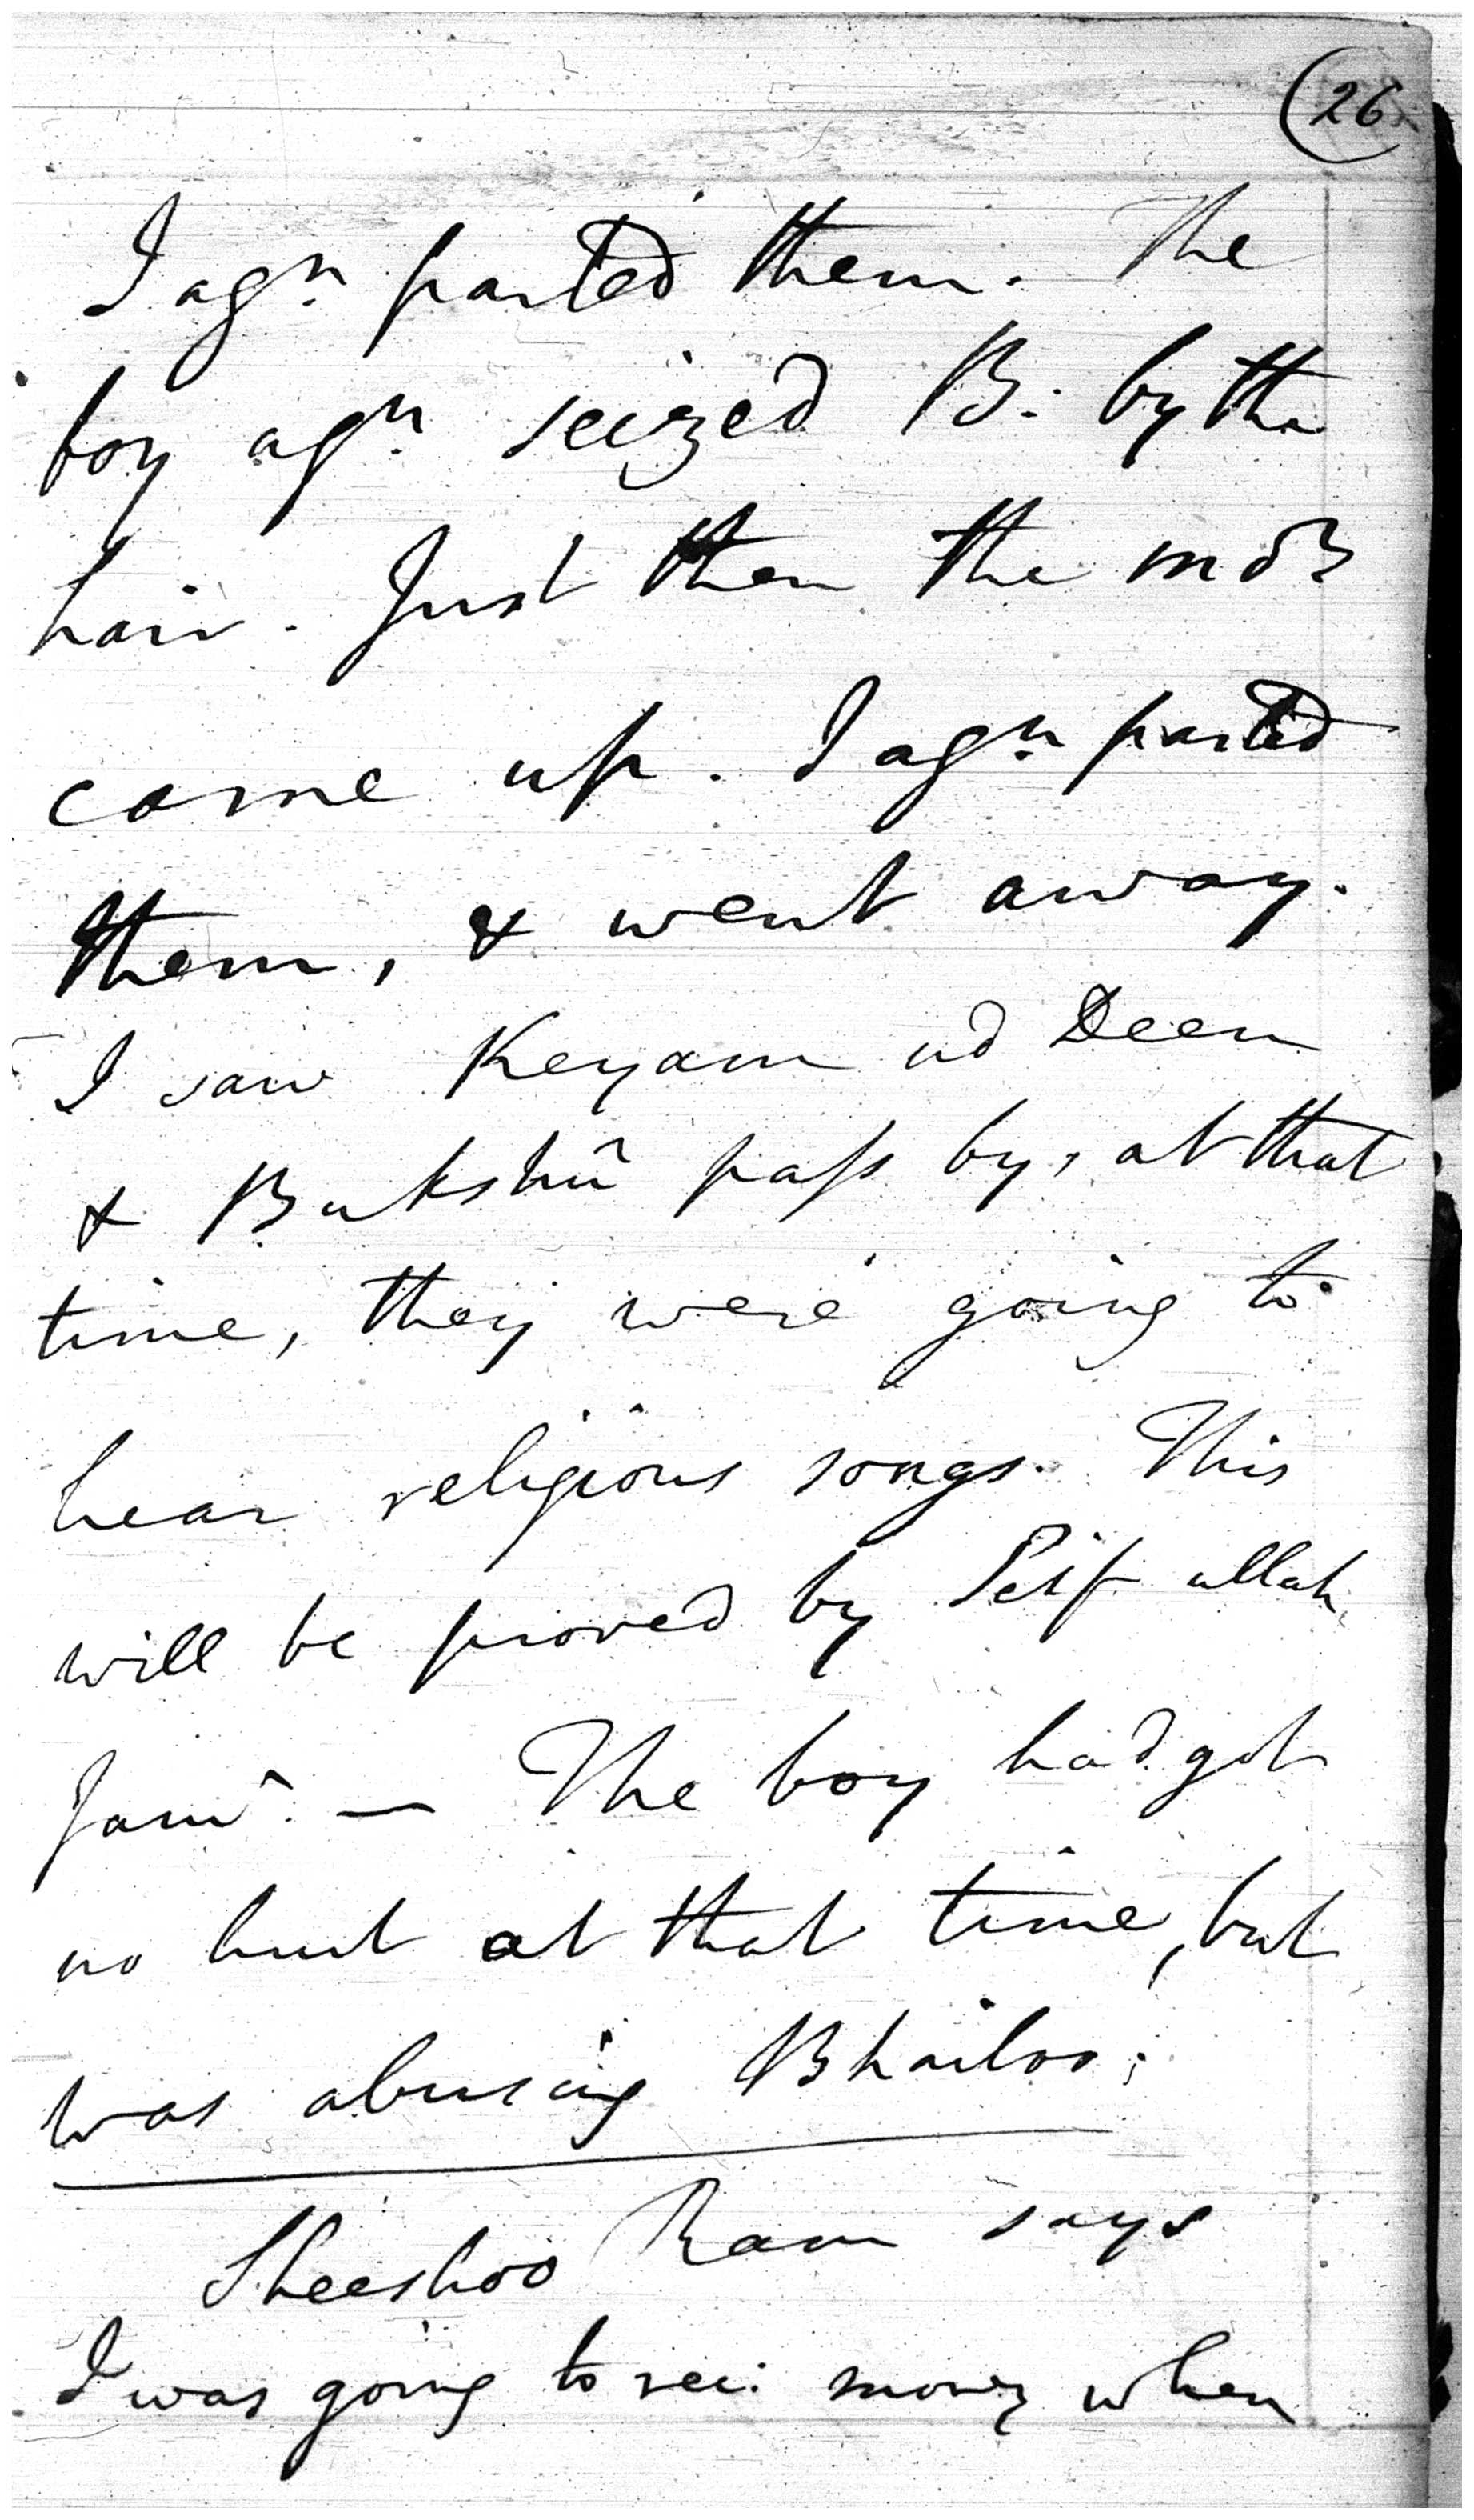 26
I agn. parted them. The
boy agn. seized B. by the
hair. Just then the
came up. I agn. parted
them, & went away.
I saw Keyam ud Deen
& Bukshû pass by, at that
time, they were going to
hear religious songs. This
will be proved by ullah
The boy had got
no hurt at that time, but
was abusing Bhailoo;
Sheeshoo Ram says
I was going to rec: money when